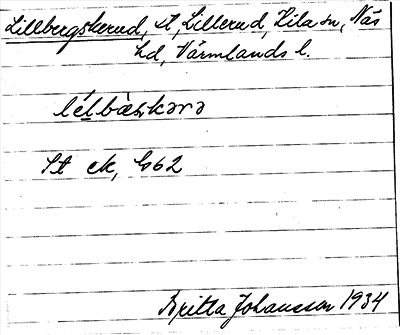 Lillbergskerud, st, Lillerud, Kila sn, Näs
hd, Värmlands l.
St ek, G62
Britta Johansson 1934